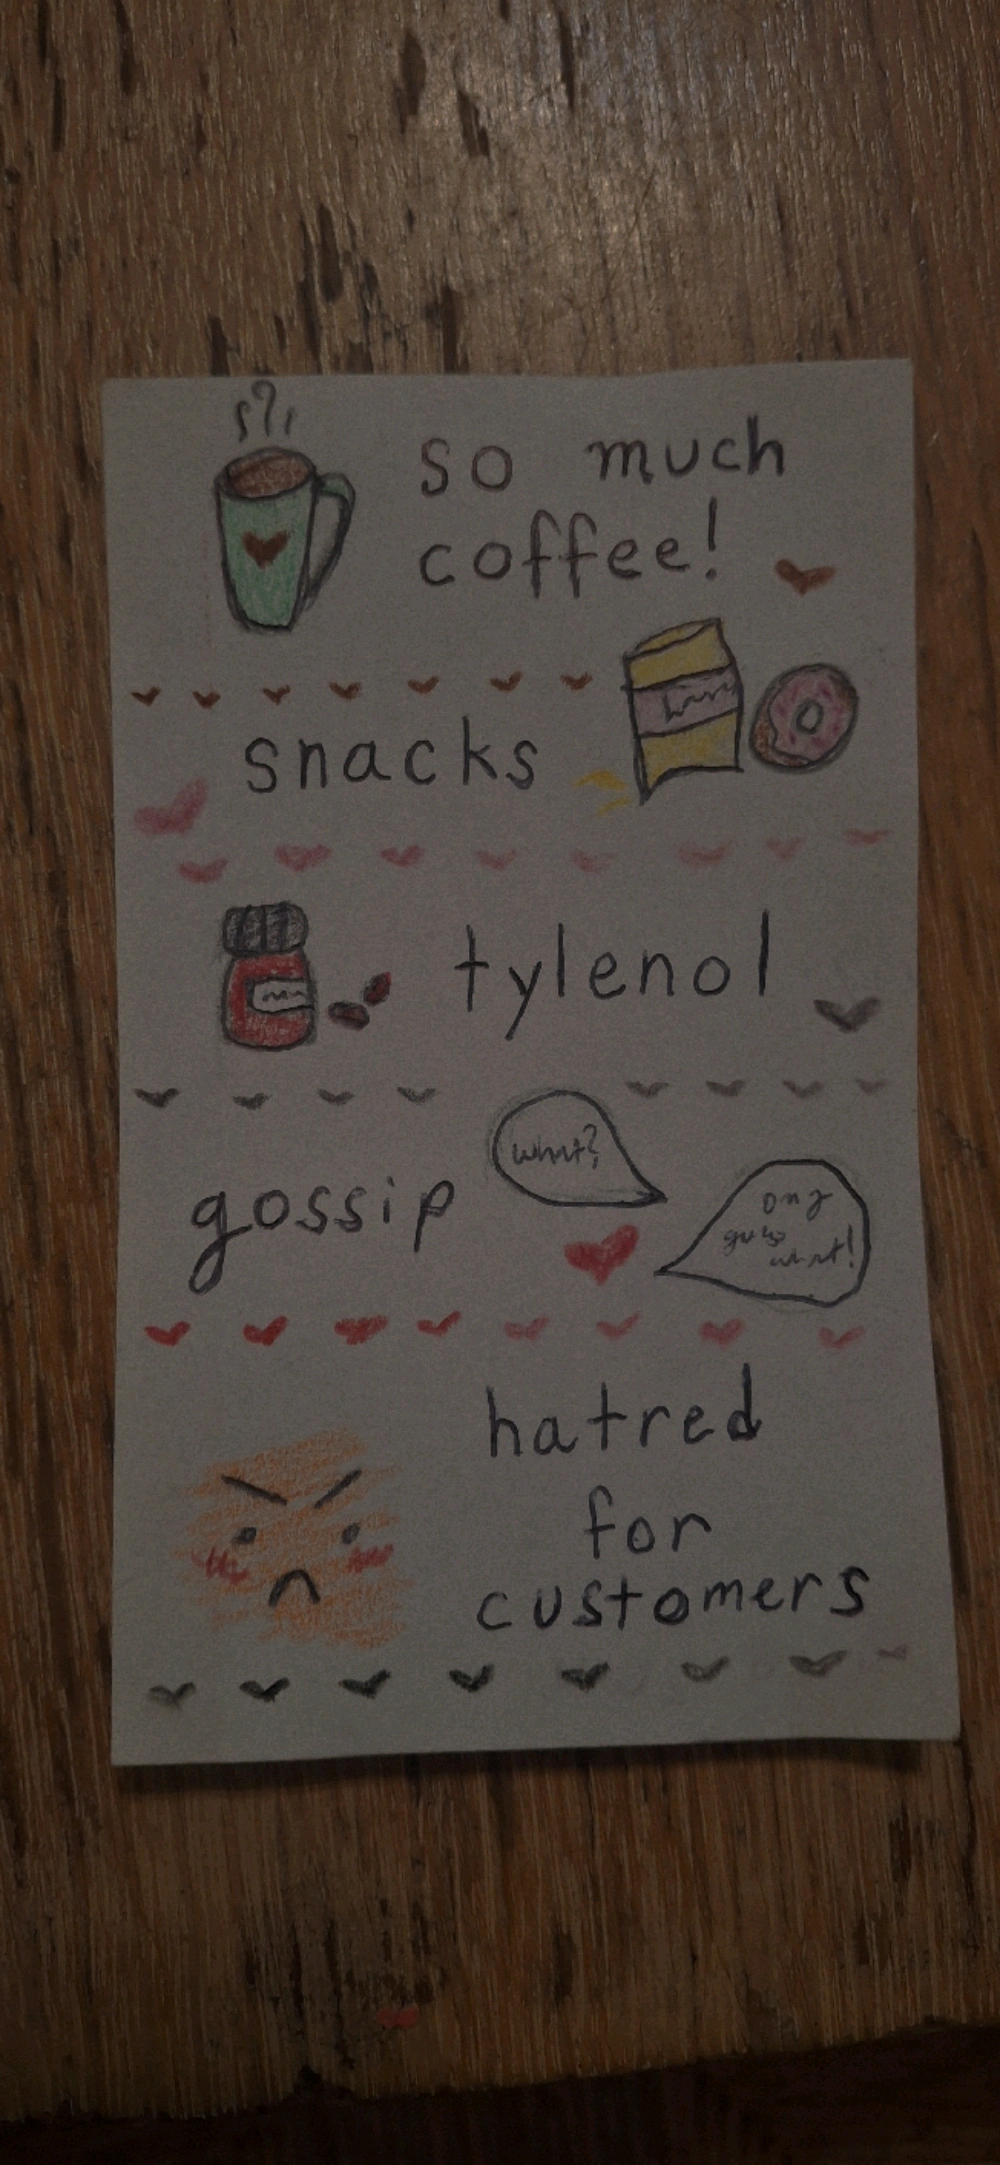 so much
coffee!
snacks
tylenol
what?
gossip
omg
guess
what!
hatred
for
customers